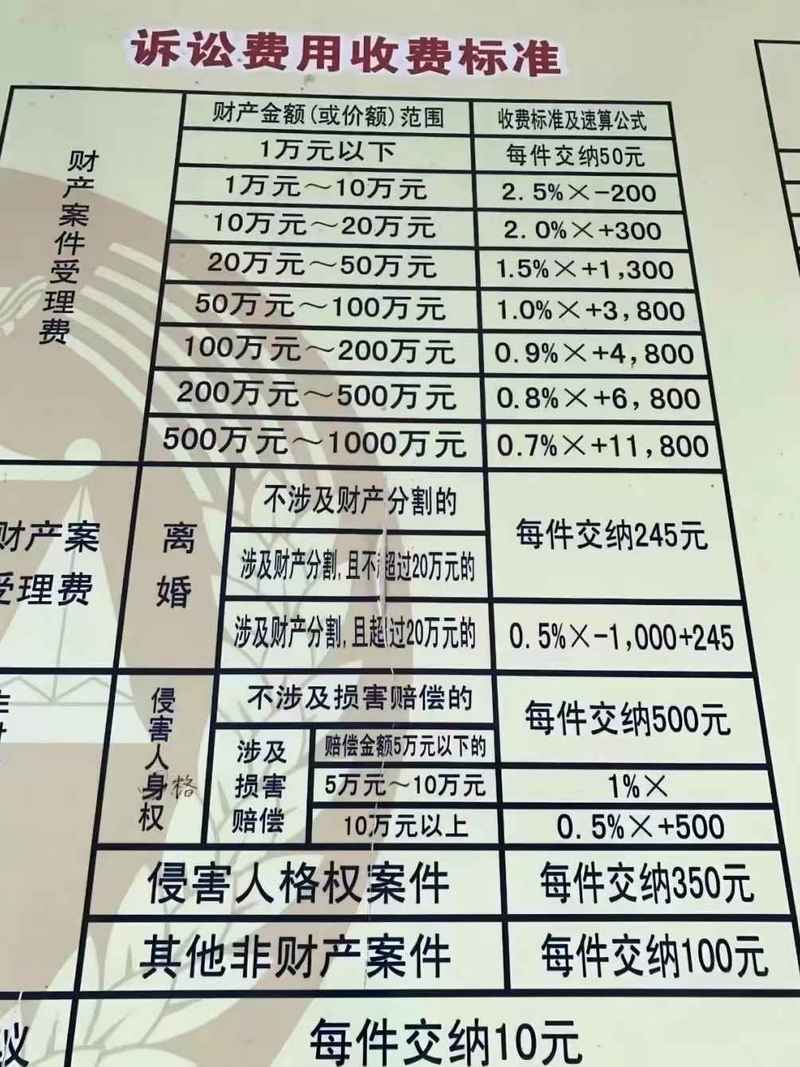 诉讼费用收费标准
财产案件受理费
财产金额(或价额)范围 收费标准及速算公式
1万元以下 每件交纳50元
1万元～10万元 2.5%×-200
10万元～20万元 2.0%×+300
20万元～50万元 1.5%×+1,300
50万元～100万元 1.0%×+3,800
100万元～200万元 0.9%×+4,800
200万元～500万元 0.8%×+6,800
500万元～1000万元 0.7%×+11,800
财产案
受理费
离婚
不涉及财产分割的
涉及财产分割,且不超过20万元的
每件交纳245元
涉及财产分割,且超过20万元的 0.5%×-1,000+245
侵害人身权
格
不涉及损害赔偿的
涉及损害赔偿
赔偿金额5万元以下的
每件交纳500元
5万元～10万元 1%×
10万元以上 0.5%×+500
侵害人格权案件 每件交纳350元
其他非财产案件 每件交纳100元
议 每件交纳10元